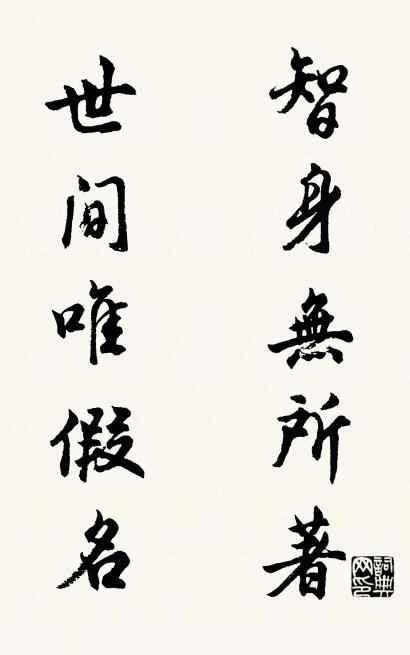 智身無所著
世间唯假名
詞典网印